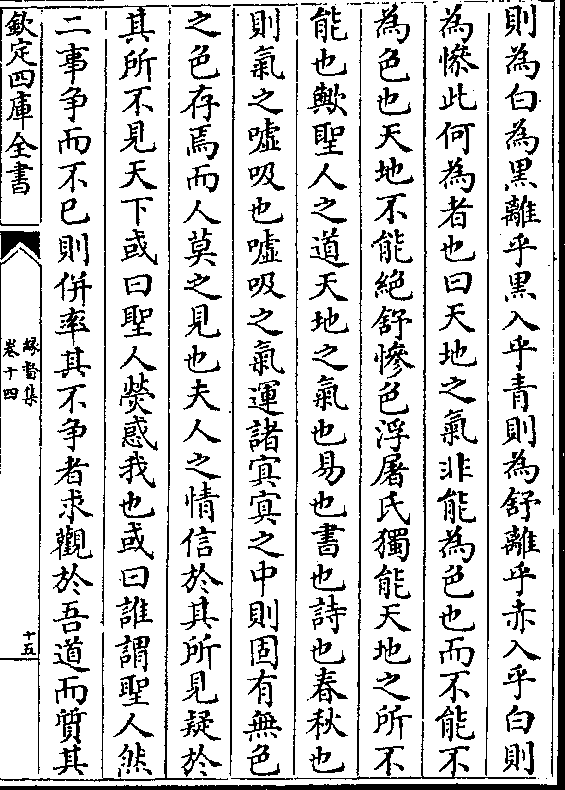 則為白為黑離乎黒入乎青則為舒離乎赤入乎白則
為慘此何為者也曰天地之氣非能為色也而不能不
為色也天地不能絶舒慘色浮屠氏獨能天地之所不
能也歟聖人之道天地之氣也易也書也詩也春秋也
則氣之噓吸也噓吸之氣運諸㝠㝠之中則固有無色
之色存焉而人莫之見也夫人之情信於其所見疑於
其所不見天下或曰聖人熒惑我也或曰誰謂聖人然
二事争而不已則併率其不争者求觀於吾道而質其
欽定四庫全書
縁督集
卷十四
十五